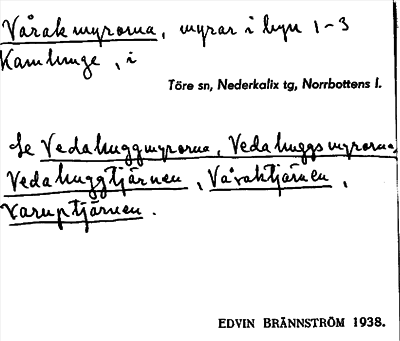 Vårakmyrorna, myrar i byn 1-3
Kamlunge, i
Töre sn, Nederkalix tg, Norrbottens l.
Se Vedahuggmyrorna, Vedahuggsmyrorna,
Vedahuggtjärnen, Våraktjärnen,
Varuptjärnen.
EDVIN BRÄNNSTRÖM 1938.